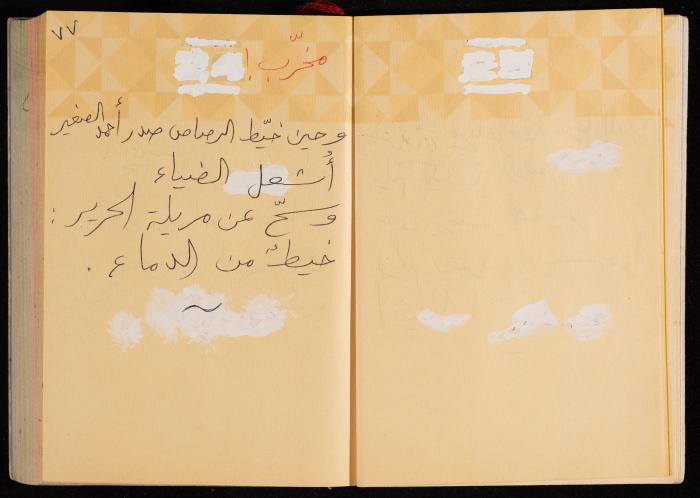 ٧٧
مخرّب !
وحين خيّط الرصاص صدر أحمد الصغير
أُشعل الضياء
وسحّ عن مريلة الحرير :
خيطٌ من الدماء .
~